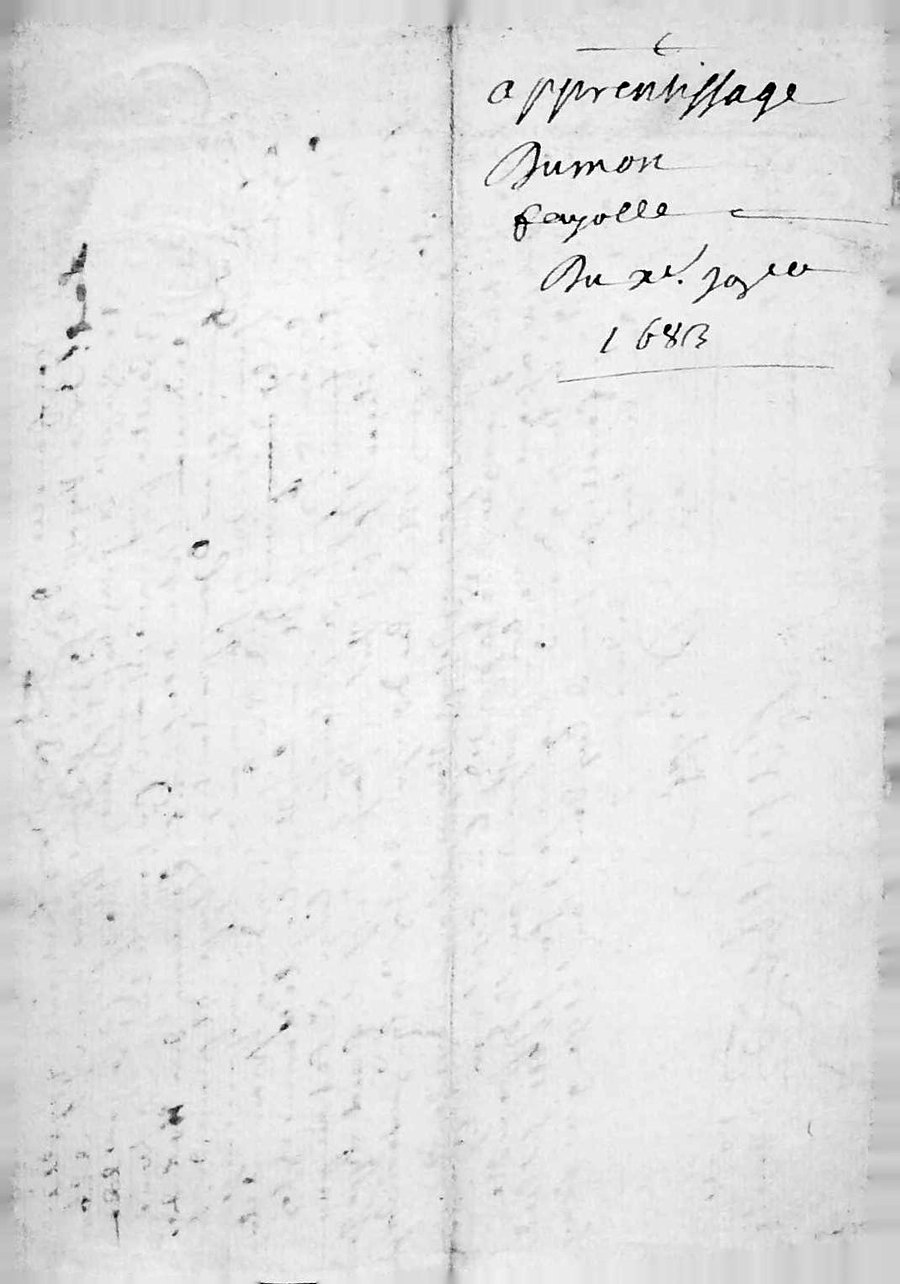 apprentissage
Dumon
fayolle
Du xe.
1683